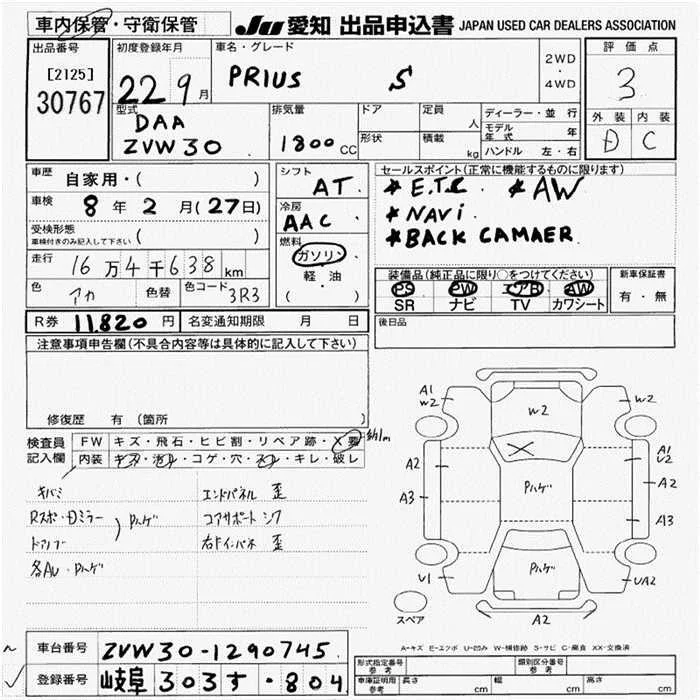 車内保管・守衛保管
JU 愛知 出品申込書 JAPAN USED CAR DEALERS ASSOCIATION
出品番号
[2125]
30767
初度登録年月
22 9月
車名・グレード
PRIUS S
2WD
・
4WD
評価点
3
外装 内装
D C
型式
DAA
ZVW30
排気量
1800 CC
ドア
形状
定員 人
積載 kg
ディーラー・並行
モデル年式 年
ハンドル 左・右
車歴 自家用・( )
車検 8年 2月(27日)
受検形態
車検付きのみ記入して下さい ( )
走行 16万4千638km
色 アカ 色替 色コード 3R3
R券 11,820 円 名変通知期限 月 日
シフト
AT
冷房
AAC
燃料
ガソリン
・
軽・油
( )
セールスポイント(正常に機能するものに限ります)
* E.T.C. * AW
* NAVi
* BACK CAMAER
装備品(純正品に限り○をつけてください)
PS PW エアB AW
SR ナビ TV カワシート
新車保証書
有・無
後日品
注意事項申告欄(不具合内容等は具体的に記入して下さい)
修復歴 有 (箇所 )
検査員記入欄
FW キズ・飛石・ヒビ割・リペア跡・X要
内装 キズ・汚レ・コゲ・穴・スレ・キレ・破レ
キバミ
Rスポ・Dミラー
ドアノブ
Pハゲ
各AW・Pハゲ
エンドパネル 歪
コアサポート シワ
右Fインパネ 歪
A1
W2
W2
W2
A2
A3
Pハゲ
A1
U2
A2
A3
U1
Pハゲ
UA2
A2
スペア
A-キズ E-エクボ U-凹み W-補修跡 S-サビ C-腐食 XX-交換済
車台番号 ZVW30-1290745
登録番号 岐阜 303す・804
形式指定番号 参考
類別区分番号 参考
車庫証明用 参考 長さ cm 幅 cm 高さ cm